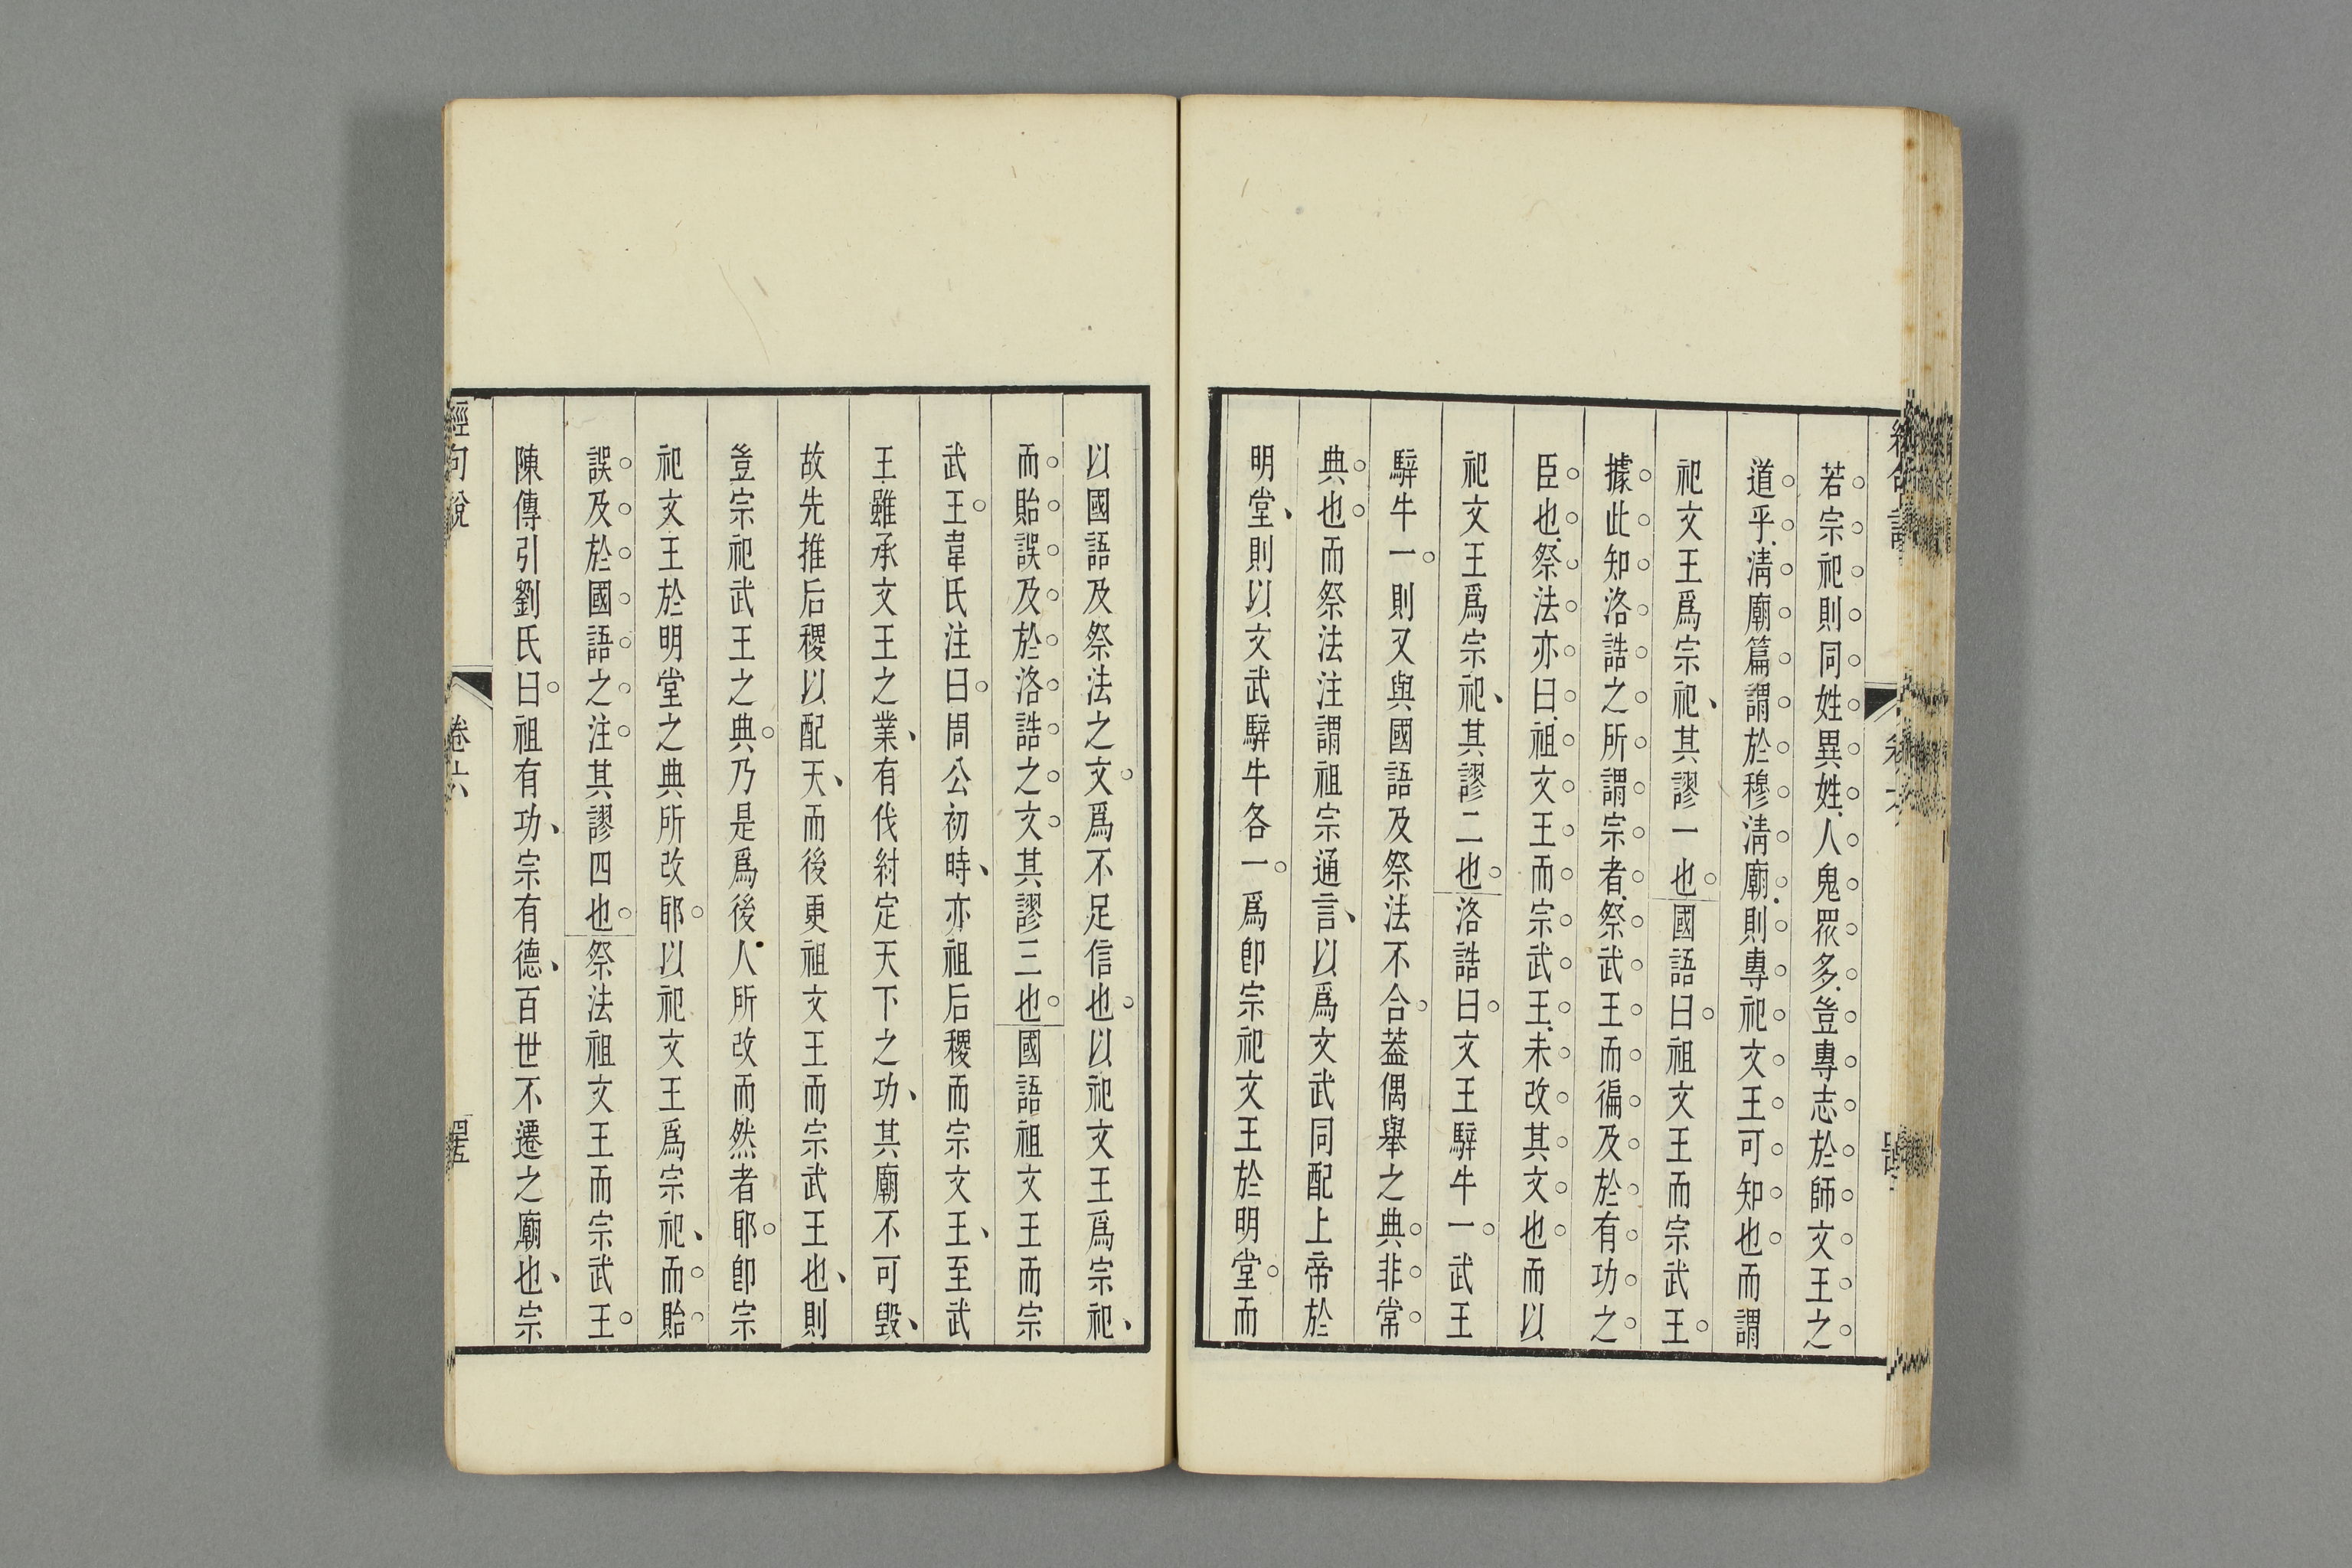 若宗祀則同姓異姓人鬼眾多豈專志於師文王之
道乎清廟篇謂於穆清廟則專祀文王可知也而謂
祀文王爲宗祀其謬一也國語曰祖文王而宗武王
據此知洛誥之所謂宗者祭武王而徧及於有功之
臣也祭法亦曰祖文王而宗武王未改其文也而以
祀文王爲宗祀其謬二也洛誥曰文王騂牛一武王
騂牛一則又與國語及祭法不合蓋偶舉之典非常
典也而祭法注謂祖宗通言以爲文武同配上帝於
明堂則以文武騂牛各一爲卽宗祀文王於明堂而
以國語及祭法之文爲不足信也以祀文王爲宗祀
而貽誤及於洛誥之文其謬三也國語祖文王而宗
武王韋氏注曰周公初時亦祖后稷而宗文王至武
王雖承文王之業有伐紂定天下之功其廟不可毀
故先推后稷以配天而後更祖文王而宗武王也則
豈宗祀武王之典乃是爲後人所改而然者耶卽宗
祀文王於明堂之典所改耶以祀文王爲宗祀而貽
誤及於國語之注其謬四也祭法祖文王而宗武王
陳傳引劉氏曰祖有功宗有德百世不遷之廟也宗
經句說
卷六